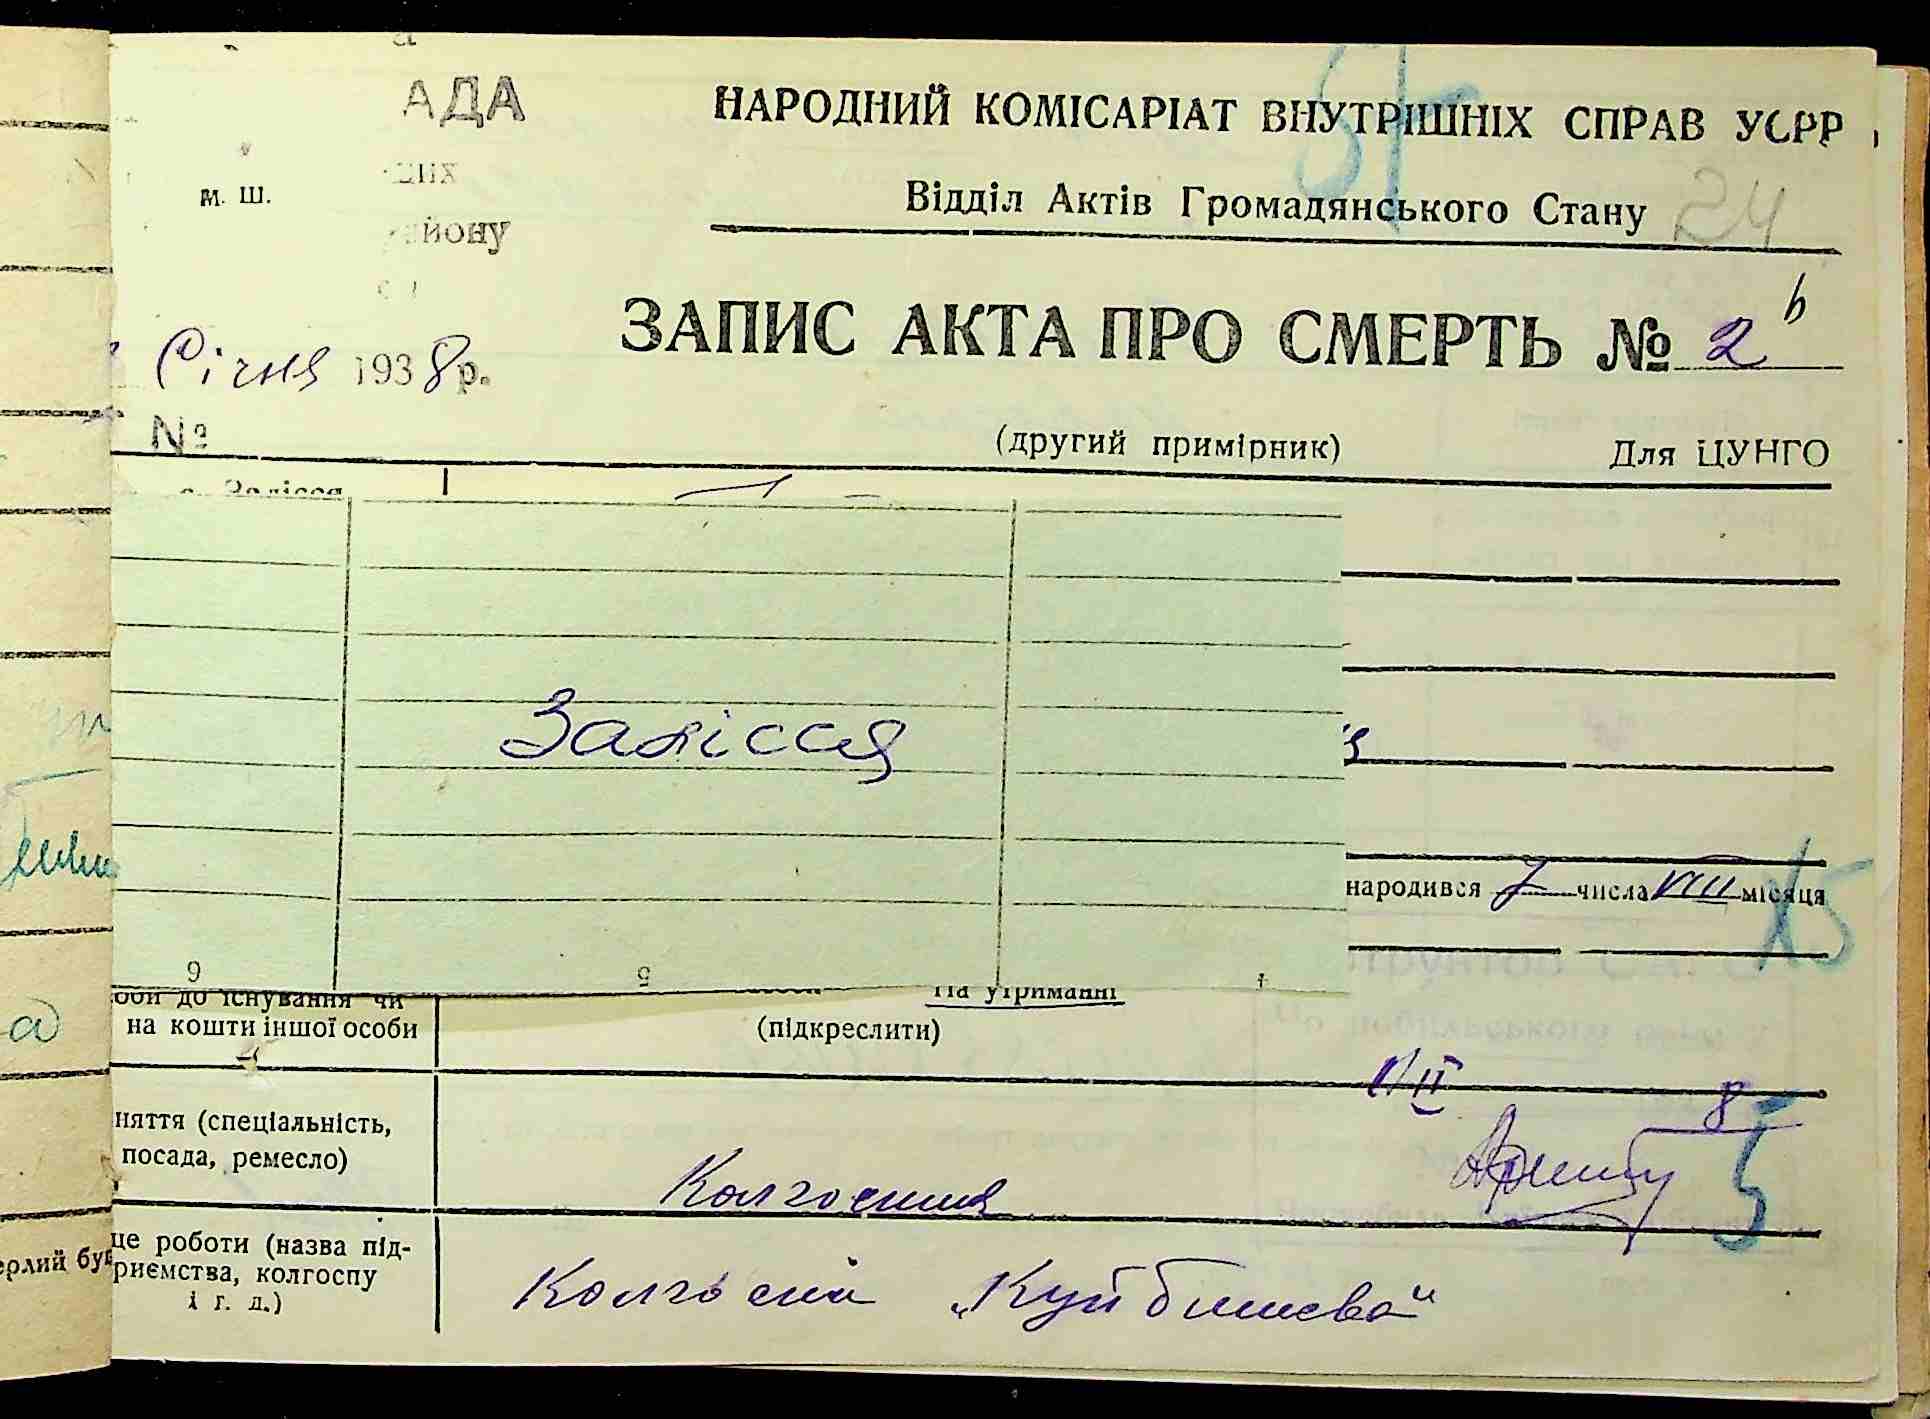 АДА
НАРОДНИЙ КОМІСАРІАТ ВНУТРІШНІХ СПРАВ УСРР
м. Ш.
Відділ Актів Громадянського Стану
24
йону
ЗАПИС АКТА ПРО СМЕРТЬ № 2
Січня 1938 р.
№
(другий примірник)
Для ЦУНГО
с. Залісся
Залісся
народився 7 числа VIII місяця
15
6 5 4
оби до існування чи
На утриманні
на кошти іншої особи
(підкреслити)
няття (спеціальність,
посада, ремесло)
II 8
5
Колгоспник
це роботи (назва під-
риємства, колгоспу
і г. д.)
Колгосп „Куйбишева"
ерлий бу